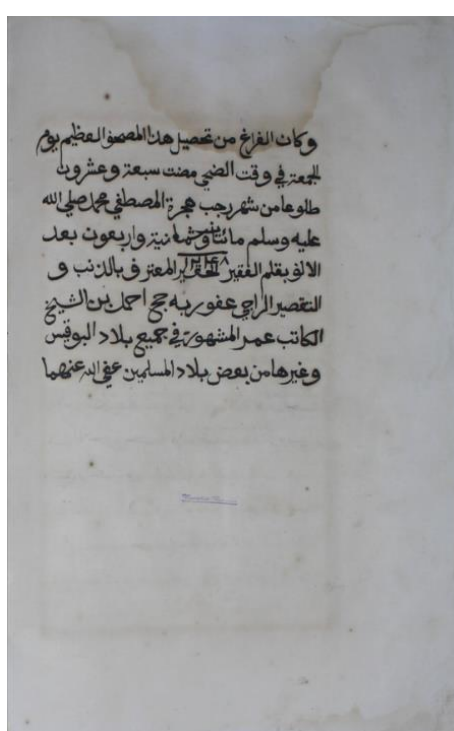 وكان الفراغ من تحصيل هذا المصحف العظيم يوم
الجمعة في وقت الضحى مضت سبعة وعشرون
طلوعا من شهر رجب هجرة المصطفى محمد صلى الله
عليه وسلم مائتا وثمانية واربعون بعد
الالف بقلم الفقير الحقير المعترف بالذنب و
١٢٤٨
التقصير الراجي عفو ربه حج احمد بن الشيخ
الكاتب عمر المشهورة في جميع بلاد البوقيس
وغيرها من بعض بلاد المسلمين عفي الله عنهما